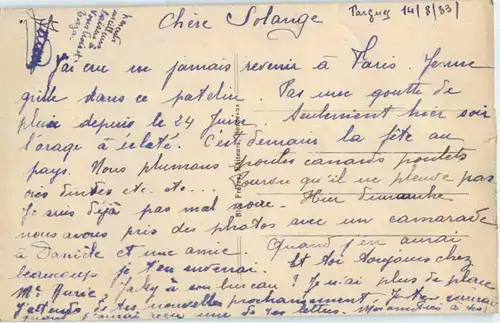 Chère Solange
Pargues 14/8/33
J'ai cru ne jamais revenir à Paris. Je me
grille dans ce patelin. Pas une goutte de
pluie depuis le 24 Juin. Seulement hier soir
l'orage à éclaté. C'est demain la fête au
pays. Nous plumons poules canards poulets
oies dindes etc. etc... Pourvu qu'il ne pleuve pas
Je suis déjà pas mal noire. Hier dimanche
nous avons pris des photos avec un camarade
à Danièle et une amie. Quand j'en aurai
beaucoup je t'en enverrai. Et toi toujours chez
Mr. Jacky à son bureau? Je n'ai plus de place
J'attends de tes nouvelles prochainement. Je t'en enverrai
quand j'aurai reçu une de tes lettres. à tes